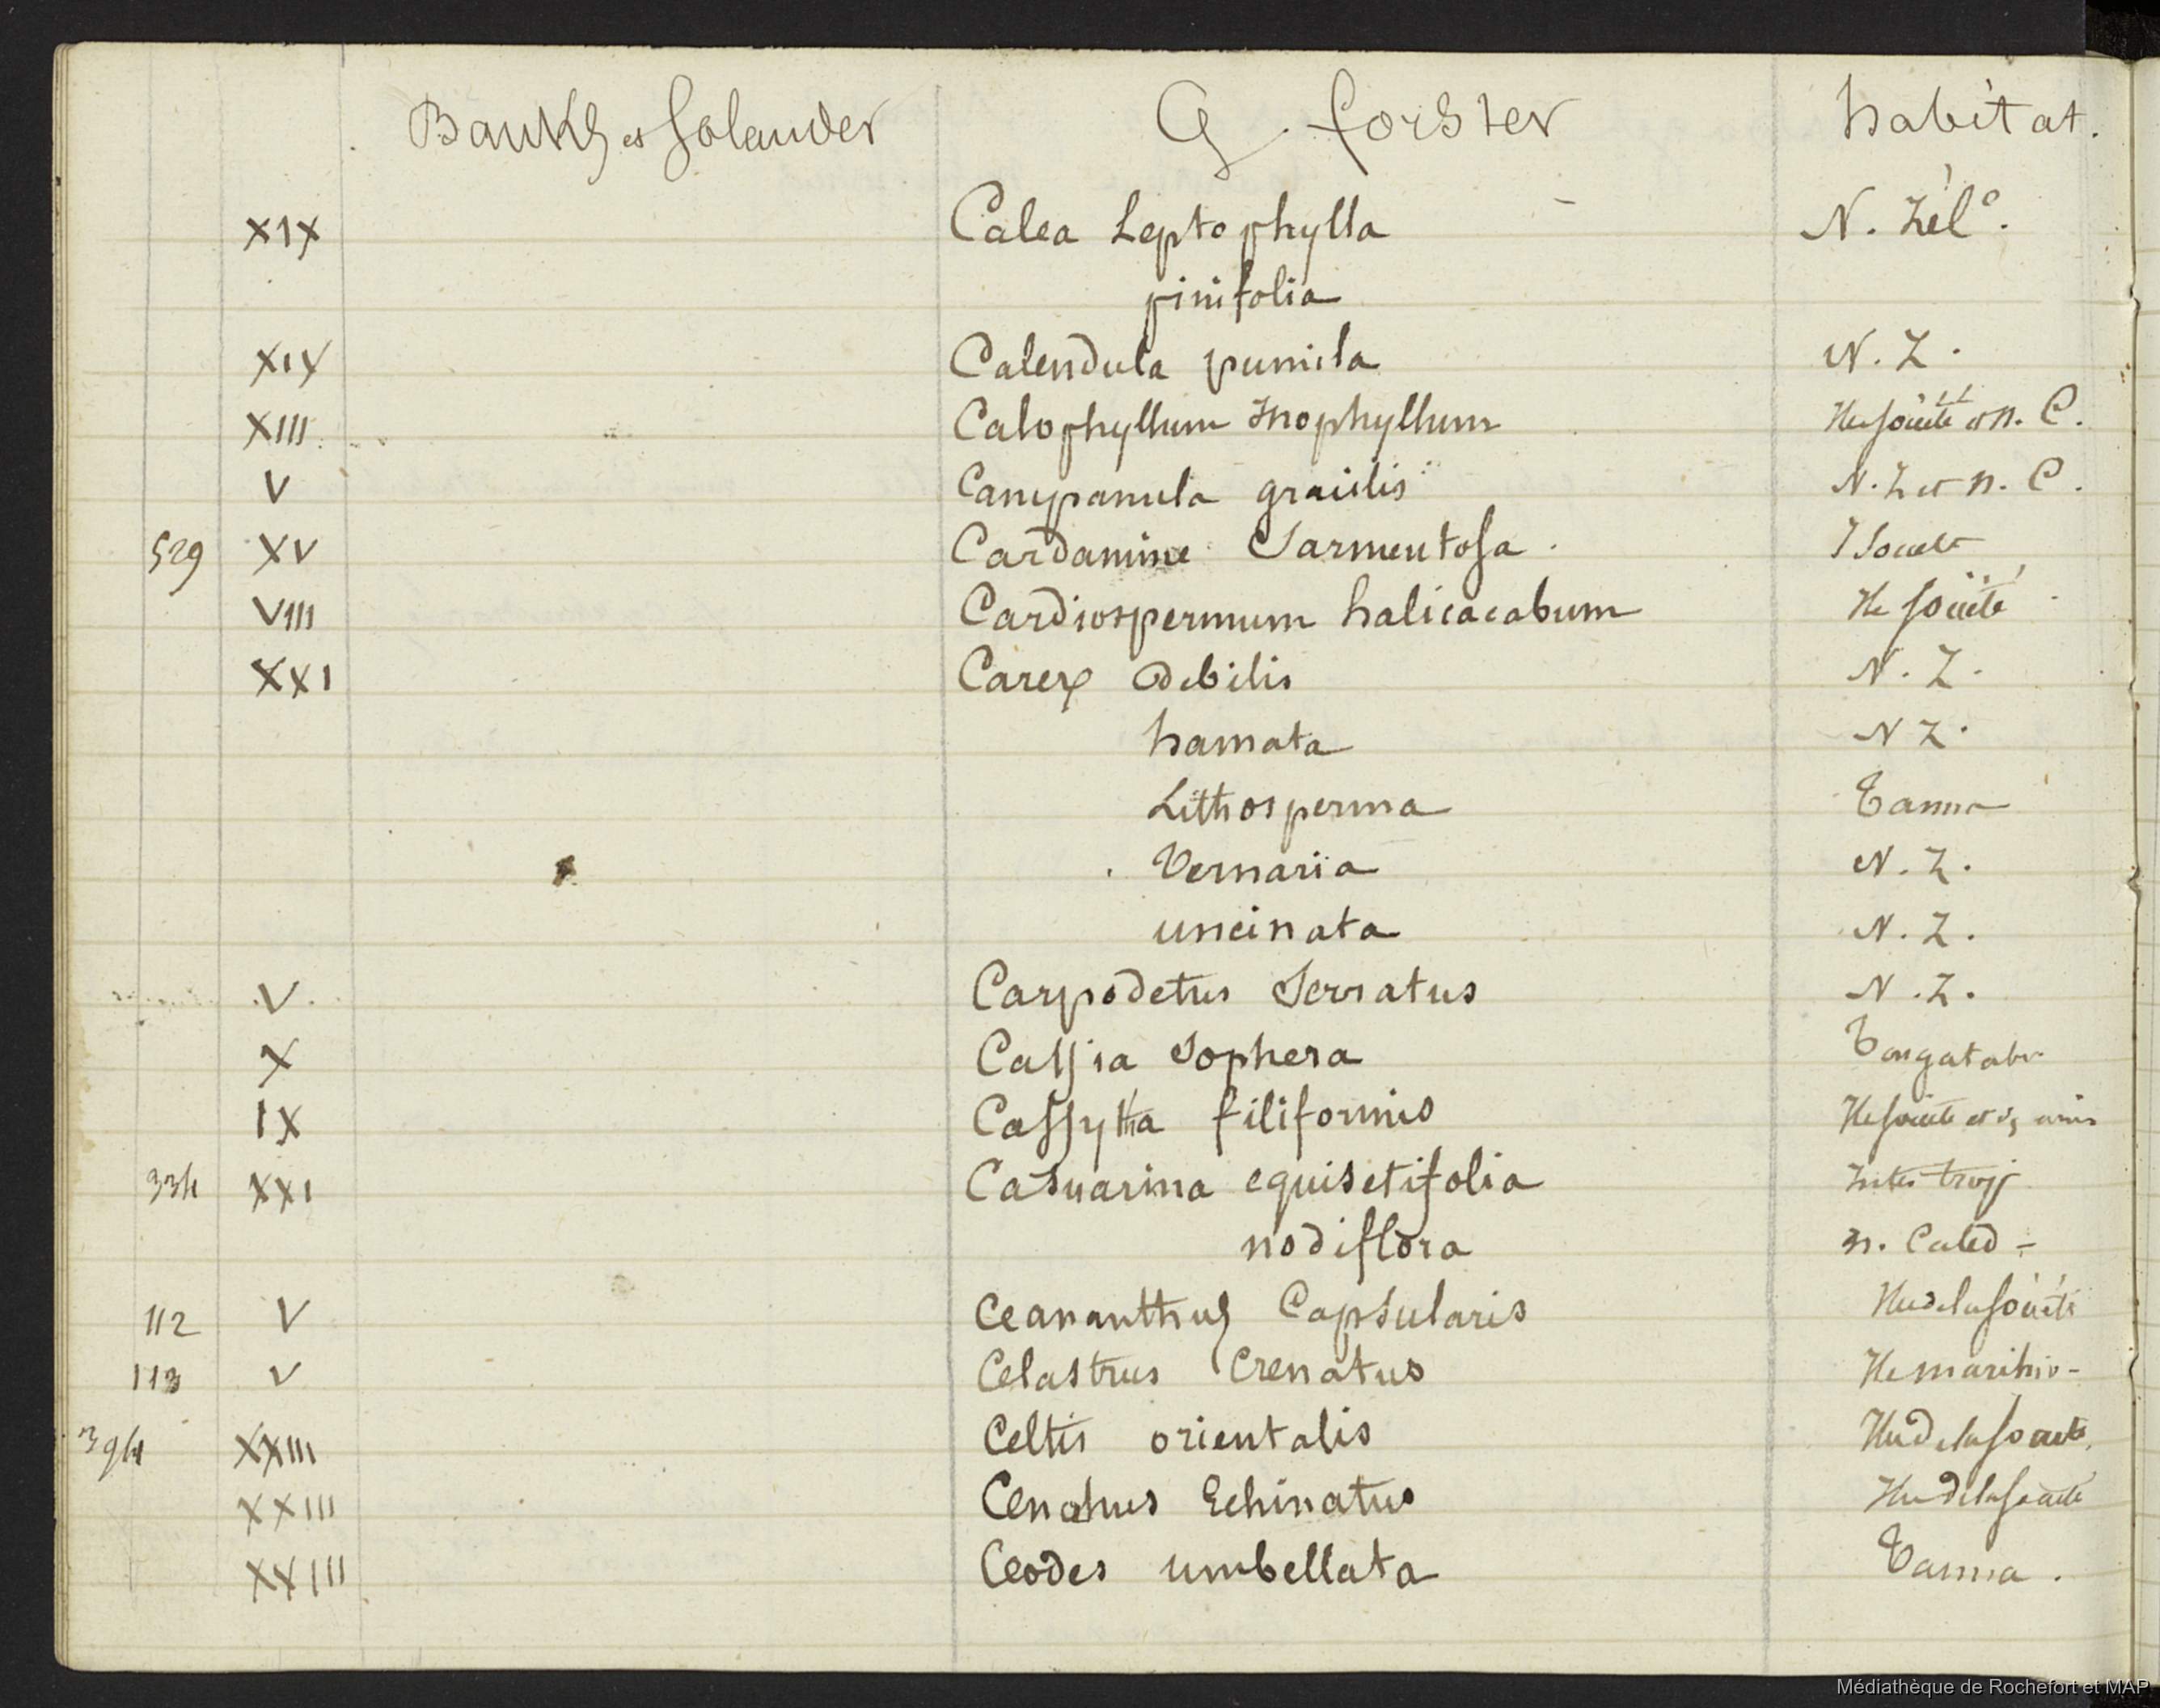 Banks et Solander G. forster habitat.
XIX Calea Leptophylla N. Zélᵉ.
pinifolia
XIX Calendula pumila N. Z.
XIII Calophyllum Inophyllum Ile Société et n. C.
V Campanula gracilis N. Z et n. C.
529 XV Cardamine Sarmentosa. I Societe
VIII Cardiospermum halicacabum Ile Société
XXI Carex debilis N. Z.
hamata N Z.
Lithosperma Tanna
Vernaria N. Z.
uncinata N. Z.
V Carpodetus Serratus N. Z.
X Cassia Sophera Tongatabu
IX Cassytha filiformis Ile Societe et amis
334 XXI Casuarina equisetifolia Inter trop
nodiflora n. Caled-
112 V Ceananthus Capsularis Ile de la Société
113 V Celastrus Crenatus
394 XXIII Celtis orientalis Ile de la Societe
XXIII Cenchrus Echinatus Ile de la Societé
XXIII Ceodes umbellata Tanna.
Médiathèque de Rochefort et MAP